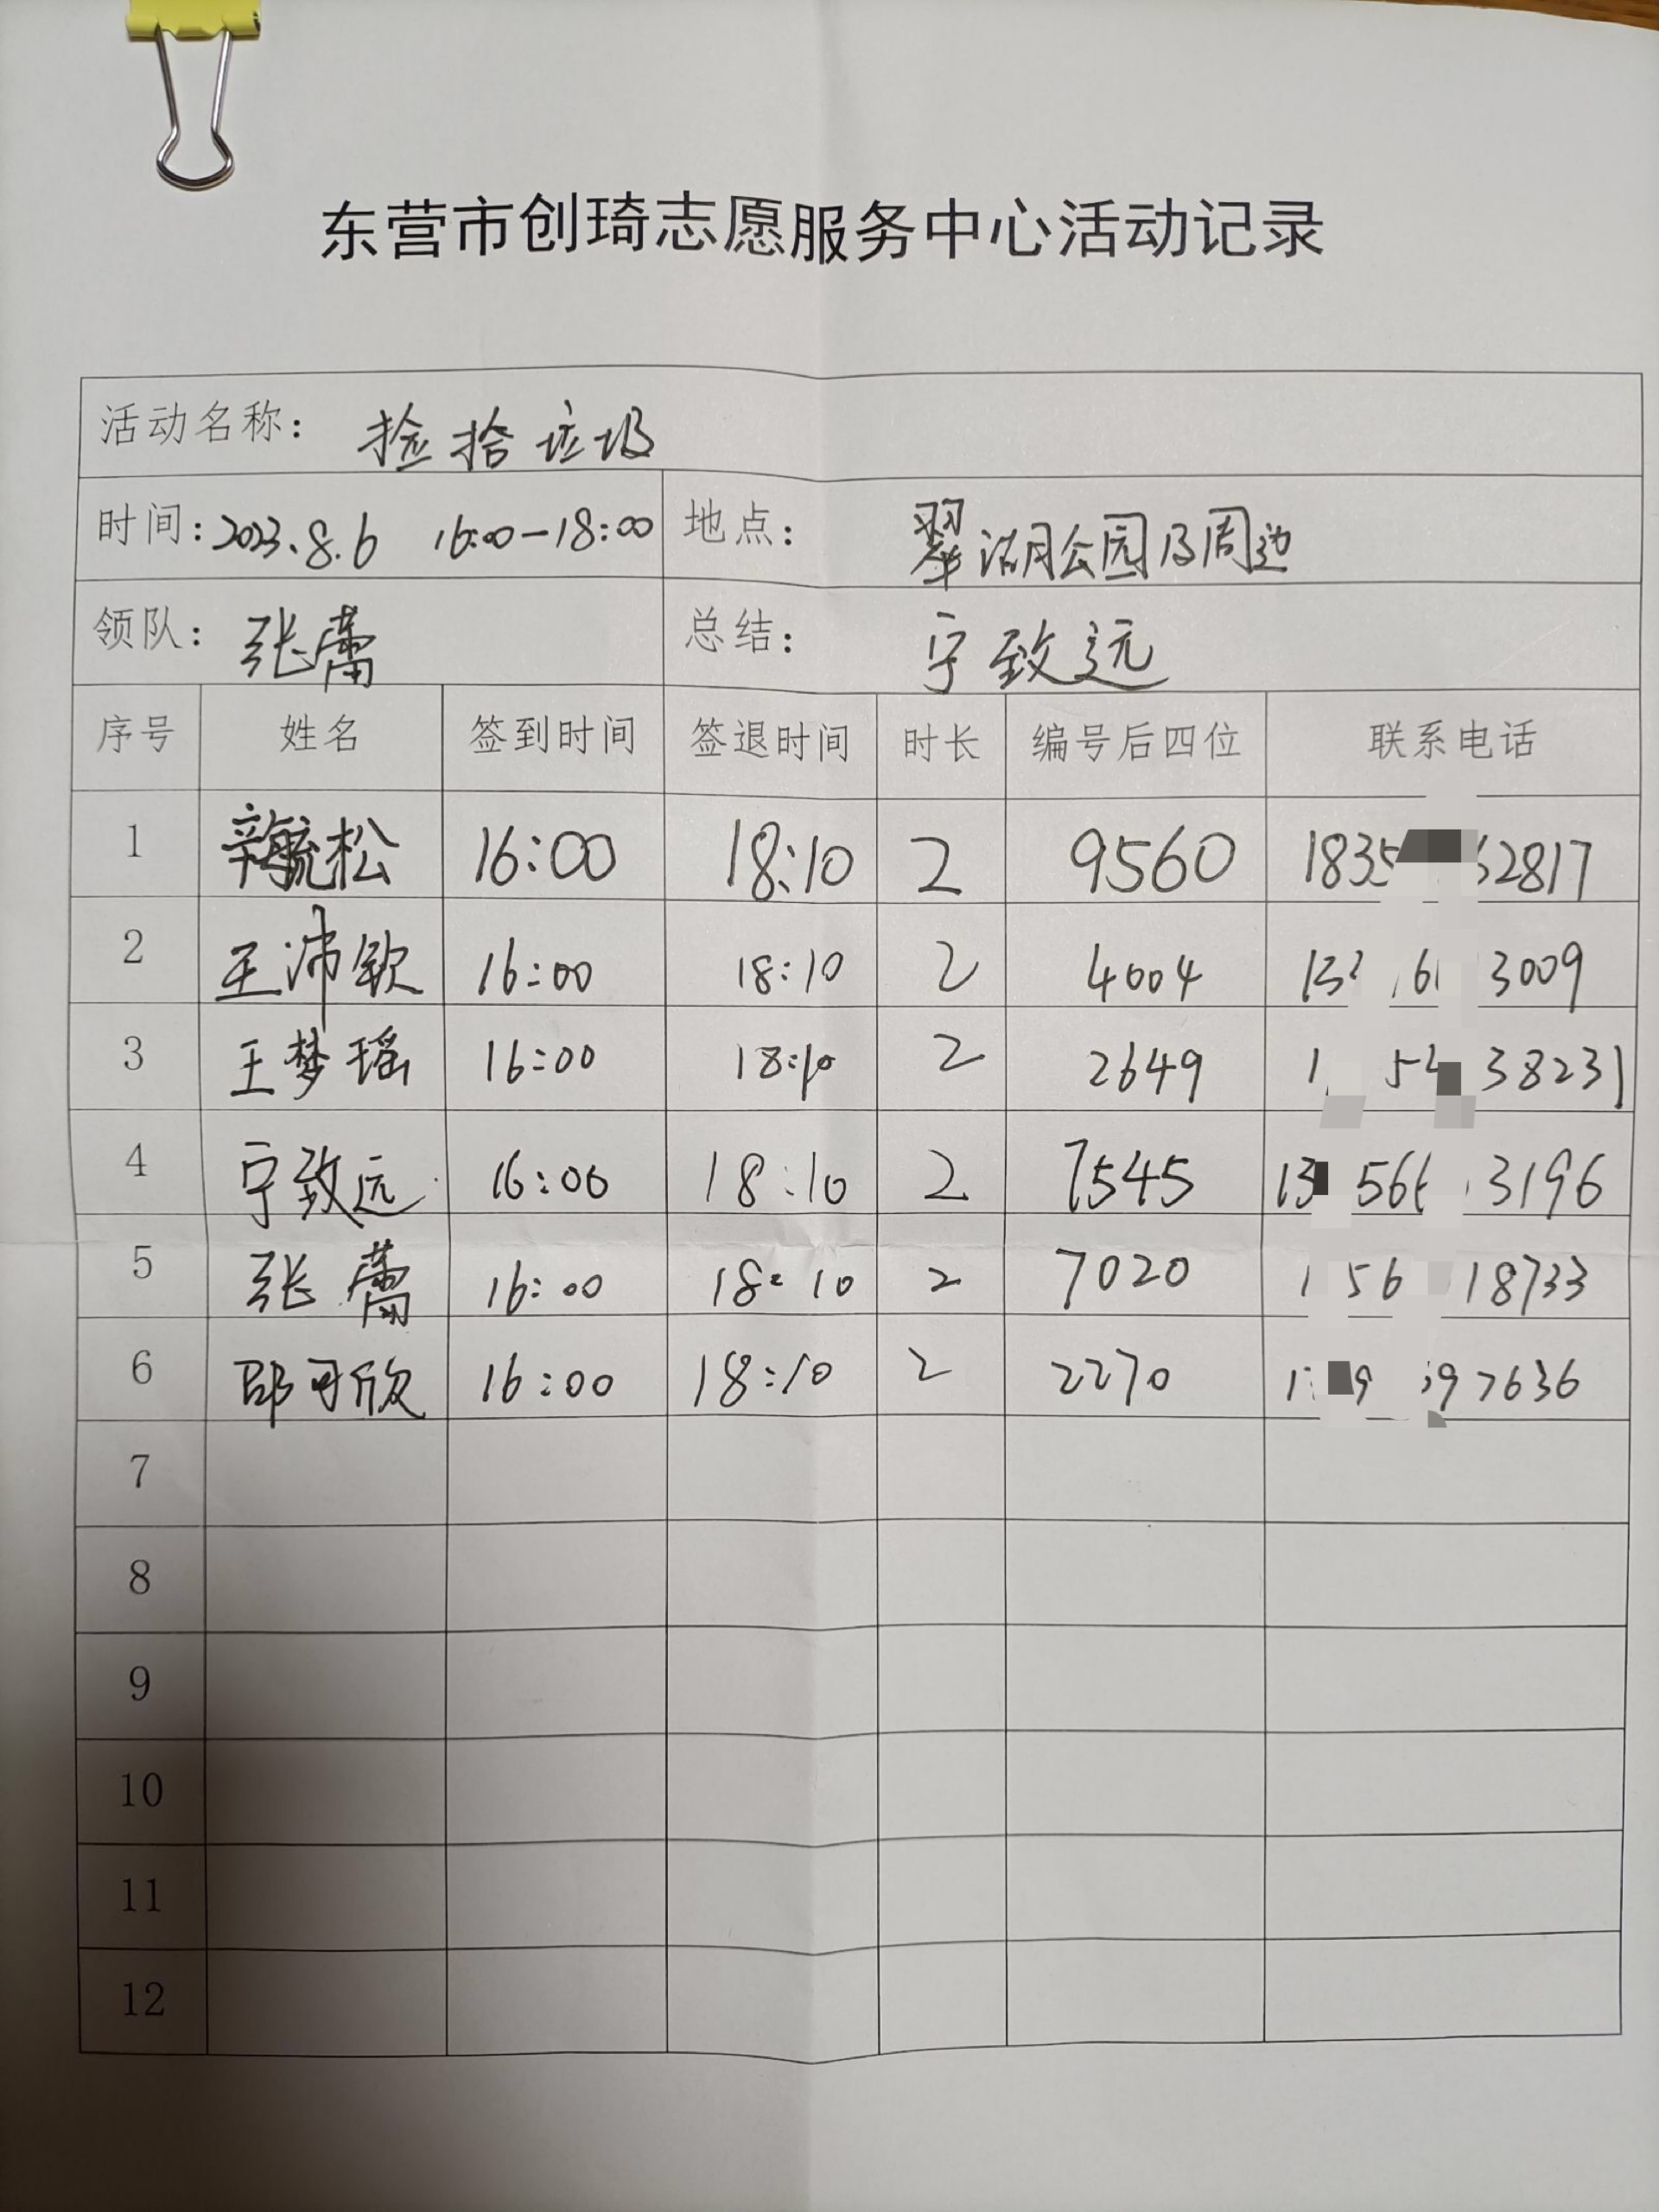 东营市创琦志愿服务中心活动记录
活动名称: 捡拾垃圾
时间: 2023.8.6 16:00-18:00 地点: 翠湖公园及周边
领队: 张蕾 总结: 宁致远
序号 姓名 签到时间 签退时间 时长 编号后四位 联系电话
1 毓松 16:00 18:10 2 9560 1835 2817
2 王沛钦 16:00 18:10 2 4004 13 6 3009
3 王梦瑶 16:00 18:10 2 2649 1 5 38231
4 宁致远 16:00 18:10 2 7545 13 56 3196
5 张蕾 16:00 18:10 2 7020 1 56 18733
6 邵可欣 16:00 18:10 2 2270 1 9 97636
7
8
9
10
11
12